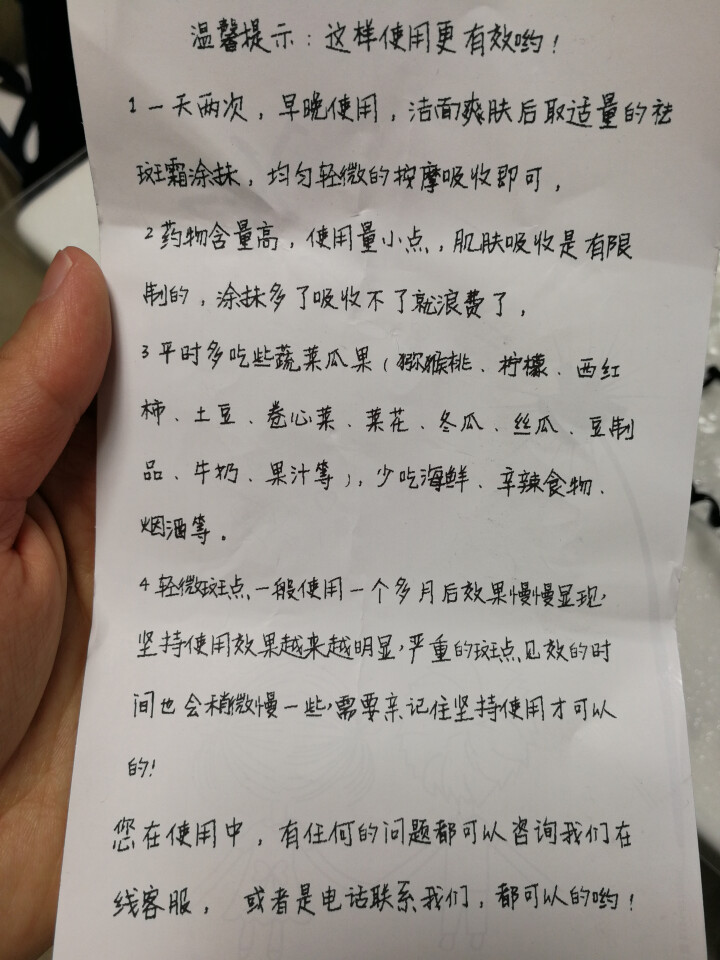 温馨提示：这样使用更有效哟！
1 一天两次，早晚使用，洁面爽肤后取适量的祛
斑霜涂抹，均匀轻微的按摩吸收即可，
2 药物含量高，使用量小点，肌肤吸收是有限
制的，涂抹多了吸收不了就浪费了，
3 平时多吃些蔬菜瓜果（猕猴桃、柠檬、西红
柿、土豆、卷心菜、菜花、冬瓜、丝瓜、豆制
品、牛奶、果汁等），少吃海鲜、辛辣食物、
烟酒等。
4 轻微斑点一般使用一个多月后效果慢慢显现，
坚持使用效果越来越明显，严重的斑点见效的时
间也会稍微慢一些，需要亲记住坚持使用才可以
的！
您在使用中，有任何的问题都可以咨询我们在
线客服，或者是电话联系我们，都可以的哟！